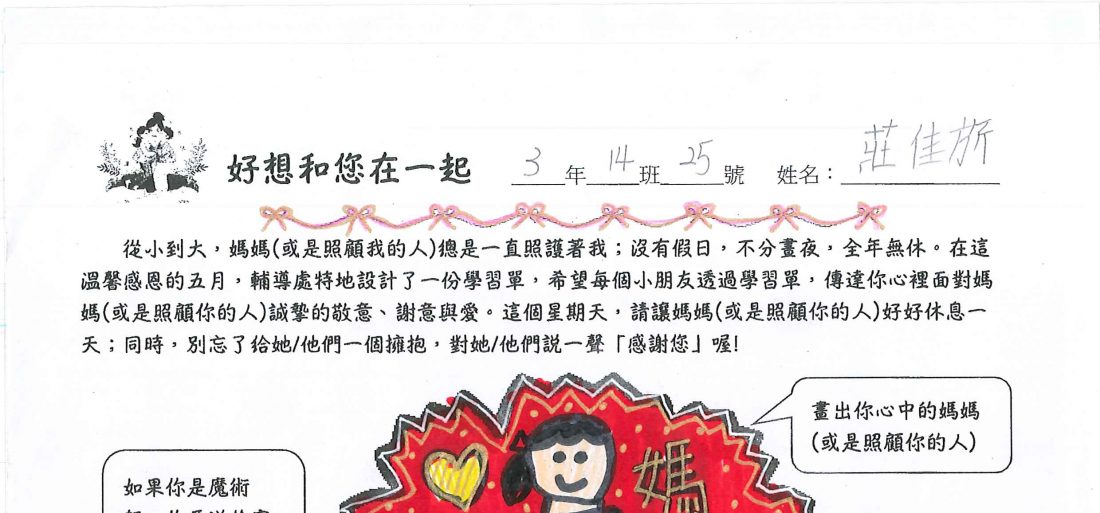 好想和您在一起 3年14班25號 姓名：莊佳
從小到大，媽媽(或是照顧我的人)總是一直照護著我；沒有假日，不分晝夜，全年無休。在這
溫馨感恩的五月，輔導處特地設計了一份學習單，希望每個小朋友透過學習單，傳達你心裡面對媽
媽(或是照顧你的人)誠摯的敬意、謝意與愛。這個星期天，請讓媽媽(或是照顧你的人)好好休息一
天；同時，別忘了給她/他們一個擁抱，對她/他們說一聲「感謝您」喔!
畫出你心中的媽媽
(或是照顧你的人)
媽
如果你是魔術